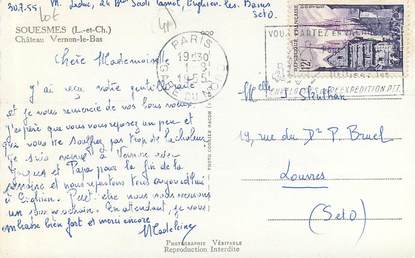 30.7.55 M. Leduc, 24 Bd Sadi Carnot, Enghien les Bains
S et O.
lot
SOUESMES (L.-et-Ch.)
Château Vernon-le-Bas
PARIS
19H30
1955
VOUS PARTEZ EN VACANCES
12F
Chère Mademoiselle
J'ai reçu votre gentille carte
et je vous remercie de vos bons vœux
J'espère que vous vous reposez un peu et
que vous ne souffrez pas trop de la chaleur
Je suis venue à Vernon avec
Jacques et Papa pour la fin de la
semaine et nous repartons tous aujourd'hui
à Enghien. Peut-être nous nous verrons
un prochain. En attendant, je vous
embrasse bien fort et merci encore
Madeleine
Melle J. Struthan
19, rue du Dr P. Bruel
Louvres
(S et O)
PHOTOGRAPHIE VÉRITABLE
Reproduction Interdite